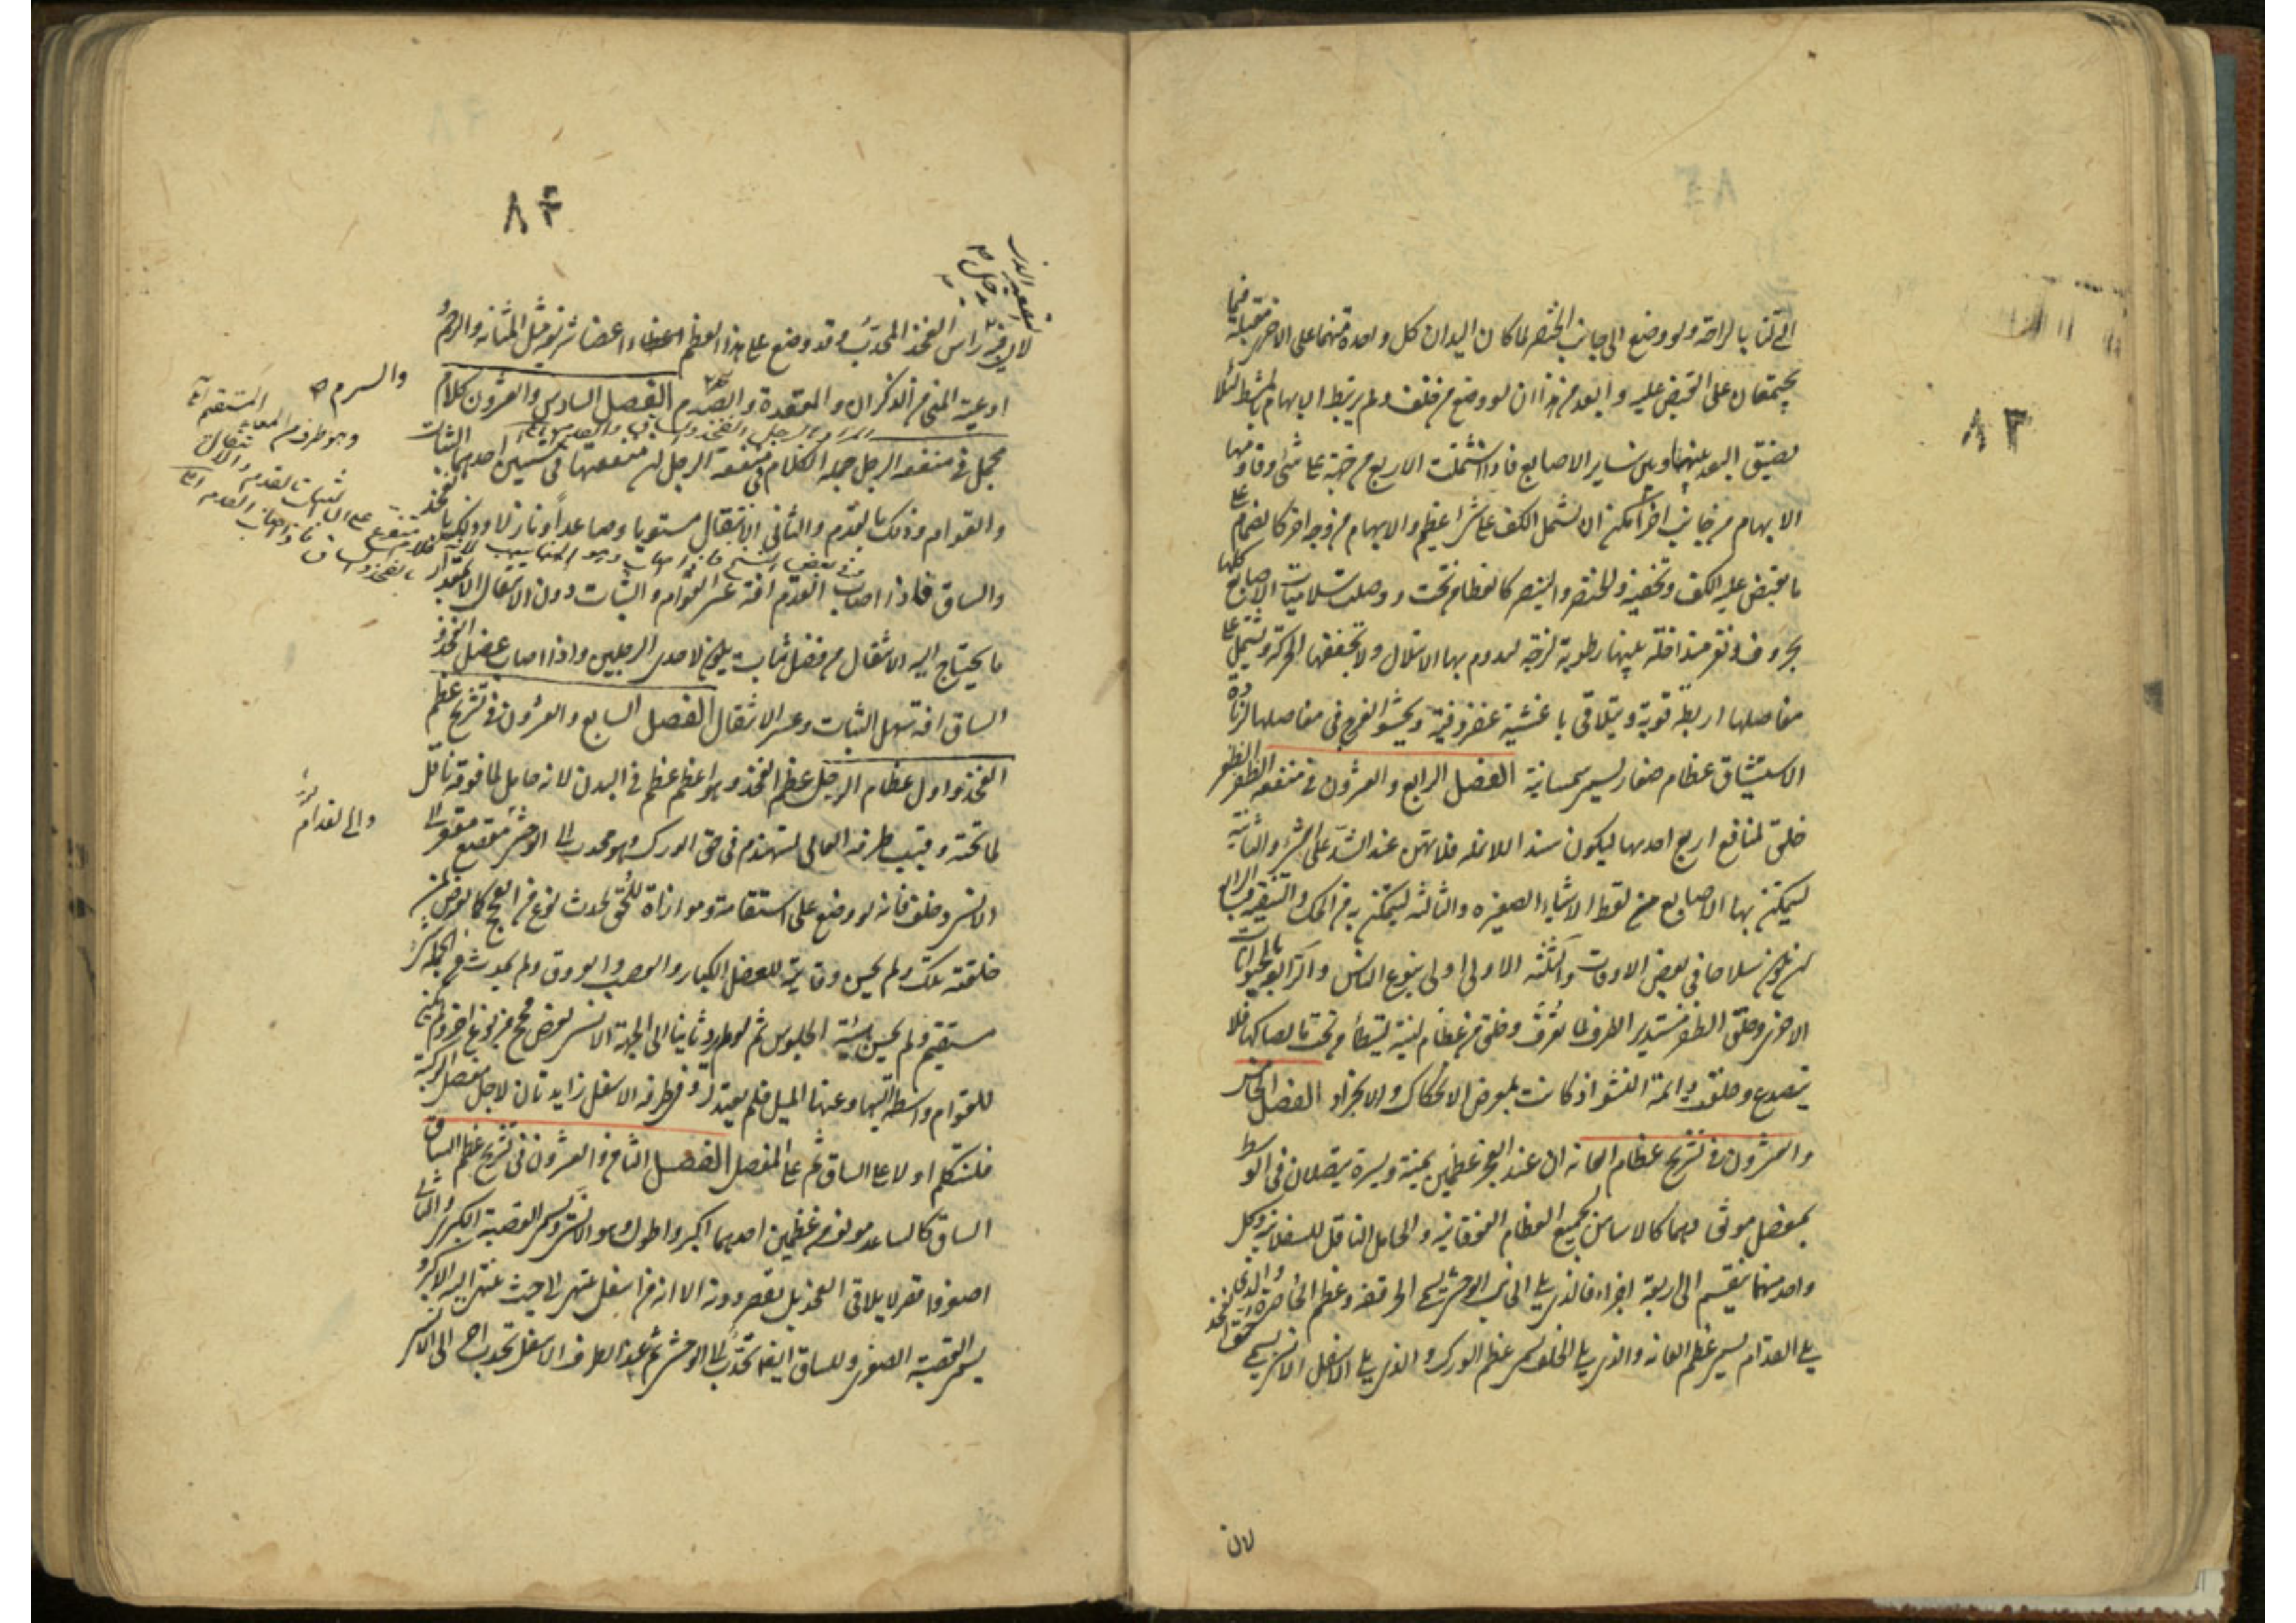 ٨٣
التي تنا بالراحة ولو وضع الى جانب الخنصر لما كان اليدان كل واحدة منهما على الاخرى مقبلة فيما
يجتمعان على القبض عليه وابعد من هذا ان لو وضع من خلف ولم يربط الابهام بالمشط لئلا
يضيق البعد بينها وبين ساير الاصابع فاذا اشتملت الاربع من جهة على شئ وقاومها
الابهام من جانب اخر امكن ان يشتمل الكف على شئ عظيم والابهام من وجه اخر كالصمام على
ما يقبض عليه الكف وتخفيه والخنصر والبنصر كالغطاء من تحت ووصلت سلاميات الاصابع كلها
بحروف ونقر متداخلة بينها رطوبة لزجة ليدوم بها الابتلال ولا تجففها الحركة وتشتمل على
مفاصلها اربطة قوية ويتلاقى باغشية غضروفية ويحشو الفرج في مفاصلها لزيادة
الاستيثاق عظام صغار تسمى سمسمانية الفصل الرابع والعشرون في منفعة الظفر الظفر
خلق لمنافع اربع احدها ليكون سندا للانملة فلا تهن عند الشد على الشئ والثانية
ليتمكن بها الاصابع من لقط الاشياء الصغيرة والثالثة ليتمكن بها من الحك والتنقية والرابعة
لان يكون سلاحا في بعض الاوقات والثلثة الاولى اولى بنوع الناس والرابعة بالحيوانات
الاخرى وخلق الظفر مستدير الطرف لما يعرف وخلق من عظام لينة ليتطأ من تحت ما يصاكها فلا
يتصدع وخلقت دائمة النشو اذ كانت بمعرض الانحكاك والانجراد الفصل الخامس
والعشرون في تشريح عظام العانة ان عند العجز عظمين يمنة ويسرة يتصلان في الوسط
بمفصل موثق وهما كالاساس لجميع العظام الفوقانية والحامل الناقل للسفلانية وكل
واحد منهما ينقسم الى اربعة اجزاء فالذي يلي الجانب الوحشي يسمى الحرقفة وعظم الخاصرة والذي
يلي القدام يسمى عظم العانة والذي يلي الخلف يسمى عظم الورك والذي يلي الاسفل الانسي يسمى حق الفخذ
لان
٨٤
لان فيه رأس الفخذ المحدب وقد وضع على هذا العظم اعضاء شريفة مثل المثانة والرحم و
اوعية المني من الذكران والمقعدة والصرم الفصل السادس والعشرون كلام
مجمل في منفعة الرجل جملة الكلام في منفعة الرجل ان منفعتها في شيئين احدهما الثبات
والقوام وذلك بالقدم والثاني الانتقال مستويا وصاعدا ونازلا وذلك بالفخذ
والساق فاذا اصاب القدم افة عسر القوام والثبات دون الانتقال الا بمقدار
ما يحتاج اليه الانتقال من فضل ثبات يكون لاحدى الرجلين واذا اصاب عضل الفخذ
الساق افة سهل الثبات وعسر الانتقال الفصل السابع والعشرون في تشريح عظم
الفخذ واول عظام الرجل عظم الفخذ وهو اعظم عظم في البدن لانه حامل لما فوقه ناقل
لما تحته وقبب طرفه العالي ليتهندم في حق الورك وهو محدب الى الوحشي مقصع مقعر الى
الانسي وخلف فانه لو وضع على استقامة وموازاة للحق لحدث نوع من الفحج كما يعرض لمن
خلقته تلك ولم يحسن وقاية للعضل الكبار والعصب والعروق ولم يحدث من الجملة شئ
مستقيم ولم يحسن هيئة الجلوس ثم لو لم يرد ثانيا الى الجهة الانسي لعرض فحج من نوع اخر ولم يكن
للقوام واسطة اليها وعنها الميل فلم يعتدل وفي طرفه الاسفل زايدتان لاجل مفصل الركبة
فلنتكلم اولا على الساق ثم على المفصل الفصل الثامن والعشرون في تشريح عظم الساق
الساق كالساعد مولف من عظمين احدهما اكبر واطول وهو الانسي ويسمى القصبة الكبرى والثاني
اصغر واقصر لا يلاقي الفخذ بل يقصر دونه الا انه من اسفل ينتهي الى حيث ينتهي اليه الاكبر و
يسمى القصبة الصغرى وللساق ايضا تحدب الى الوحشي ثم عند الطرف الاسفل تحدب اخر الى الانسي
والسرم
وهو طرف المعاء المستقيم
والى القدام